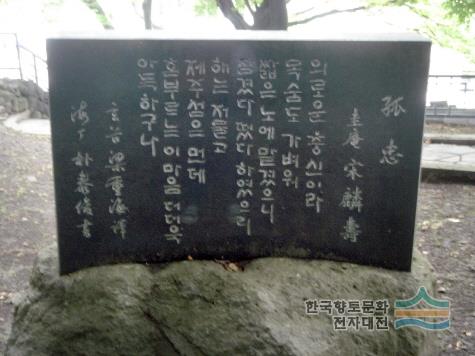 孤忠
圭庵 宋麟壽
의로운 충신이라
목숨도 가벼워
짧은 노에 맡겼으니
잠겼다 떴다 하였으리
해는 저물고
제주섬은 먼데
혼부르는 이 마음 더더욱
아득하구나
玄谷 梁重海 譯
海丁 朴泰俊 書
한국향토문화
전자대전